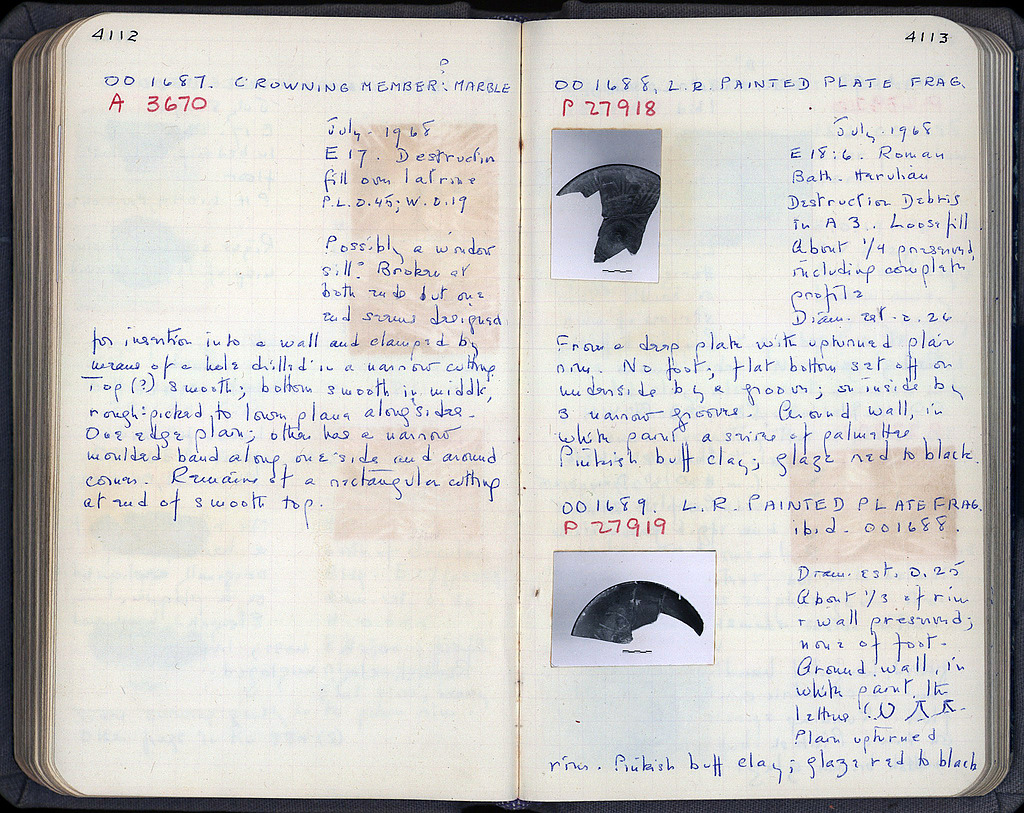 4112
OO 1687. CROWNING MEMBER?: MARBLE
A 3670
July. 1968
E 17. Destruction
fill over latrine
P.L. 0.45; W. 0.19
Possibly a window
sill? Broken at
both ends but one
end seems designed
for insertion into a wall and clamped by
means of a hole drilled in a narrow cutting.
Top (?) smooth; bottom smooth in middle,
rough-picked to lower plane along sides.
One edge plain; other has a narrow
moulded band along one side and around
corner. Remains of a rectangular cutting
at end of smooth top.
4113
OO 1688. L.R. PAINTED PLATE FRAG.
P 27918
July. 1968
E 18:6. Roman
Bath. Herulian
Destruction Debris
in A 3. Loose fill
About 1/4 preserved,
including complete
profile
Diam. est. c. 26
From a deep plate with upturned plain
rim. No foot; flat bottom set off on
underside by a groove; on inside by
3 narrow grooves. Around wall, in
white paint a series of palmettes
Pinkish buff clay; glaze red to black.
OO 1689. L.R. PAINTED PLATE FRAG.
P 27919
ibid. OO1688.
Diam. est. 0.25
About 1/3 of rim
+ wall preserved;
none of foot.
Around wall, in
white paint, the
letters
Plain upturned
rim. Pinkish buff clay; glaze red to black